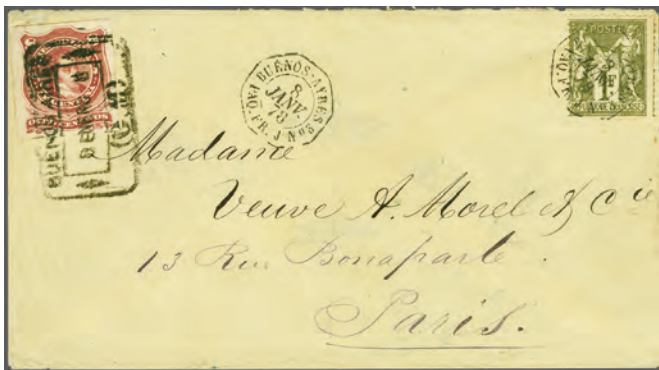 BUENOS AIRES
8 ENERO
BUENOS-AYRES
8
JANV.
78
PAQ. FR. J Nº3
POSTE
1F
Madame
Veuve A. Morel & Cie
13 Rue Bonaparte
Paris.